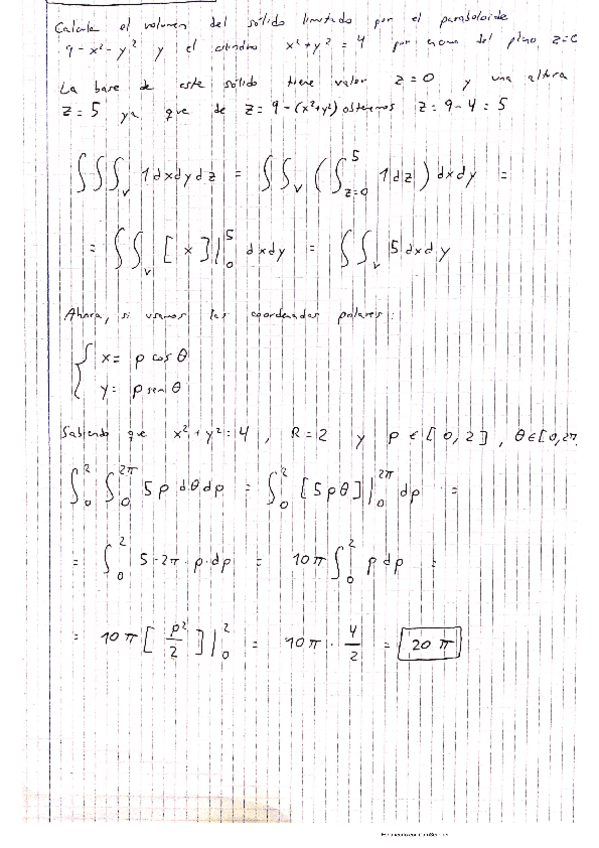 Calcula el volumen del sólido limitado por el paraboloide
9 - x² - y² y el cilindro x² + y² = 4 por encima del plano z=0
La base de este sólido tiene valor z = 0 y una altura
z = 5 ya que de z = 9 - (x²+y²) obtenemos z = 9 - 4 = 5
∫∫∫_V 1 dxdydz = ∫∫_V (∫_{z=0}^{5} 1 dz) dxdy =
= ∫∫_V [x]|_0^5 dxdy = ∫∫_V 5 dxdy
Ahora, si usamos las coordenadas polares:
{ x = ρ cos θ
y = ρ sen θ
Sabiendo que x² + y² = 4, R = 2 y ρ ∈ [0,2], θ ∈ [0,2π
∫_0^2 ∫_0^{2π} 5ρ dθdρ = ∫_0^2 [5ρθ]|_0^{2π} dρ =
= ∫_0^2 5·2π·ρ·dρ = 10π ∫_0^2 ρ dρ =
= 10π [ρ²/2]|_0^2 = 10π · 4/2 = 20 π